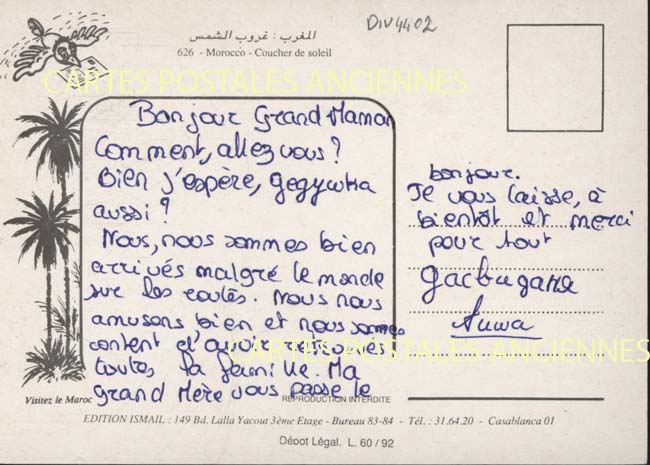 DIV4402
المغرب : غروب الشمس
626 - Morocco - Coucher de soleil
CARTES POSTALES ANCIENNES
Bonjour Grand Maman
Comment, allez vous ?
Bien j'espère,
aussi ?
Nous, nous sommes bien
arrivés malgré le monde
sur les routes. Nous nous
amusons bien et nous sommes
content d'avoir
toutes la famille. Ma
grand Mère vous passe le
bonjour.
Je vous laisse, à
bientôt et merci
pour tout
CARTES POSTALES ANCIENNES
Visitez le Maroc
REPRODUCTION INTERDITE
EDITION ISMAIL : 149 Bd. Lalla Yacout 3ème Etage - Bureau 83-84 - Tél. : 31.64.20 - Casablanca 01
Dépot Légal. L. 60 / 92